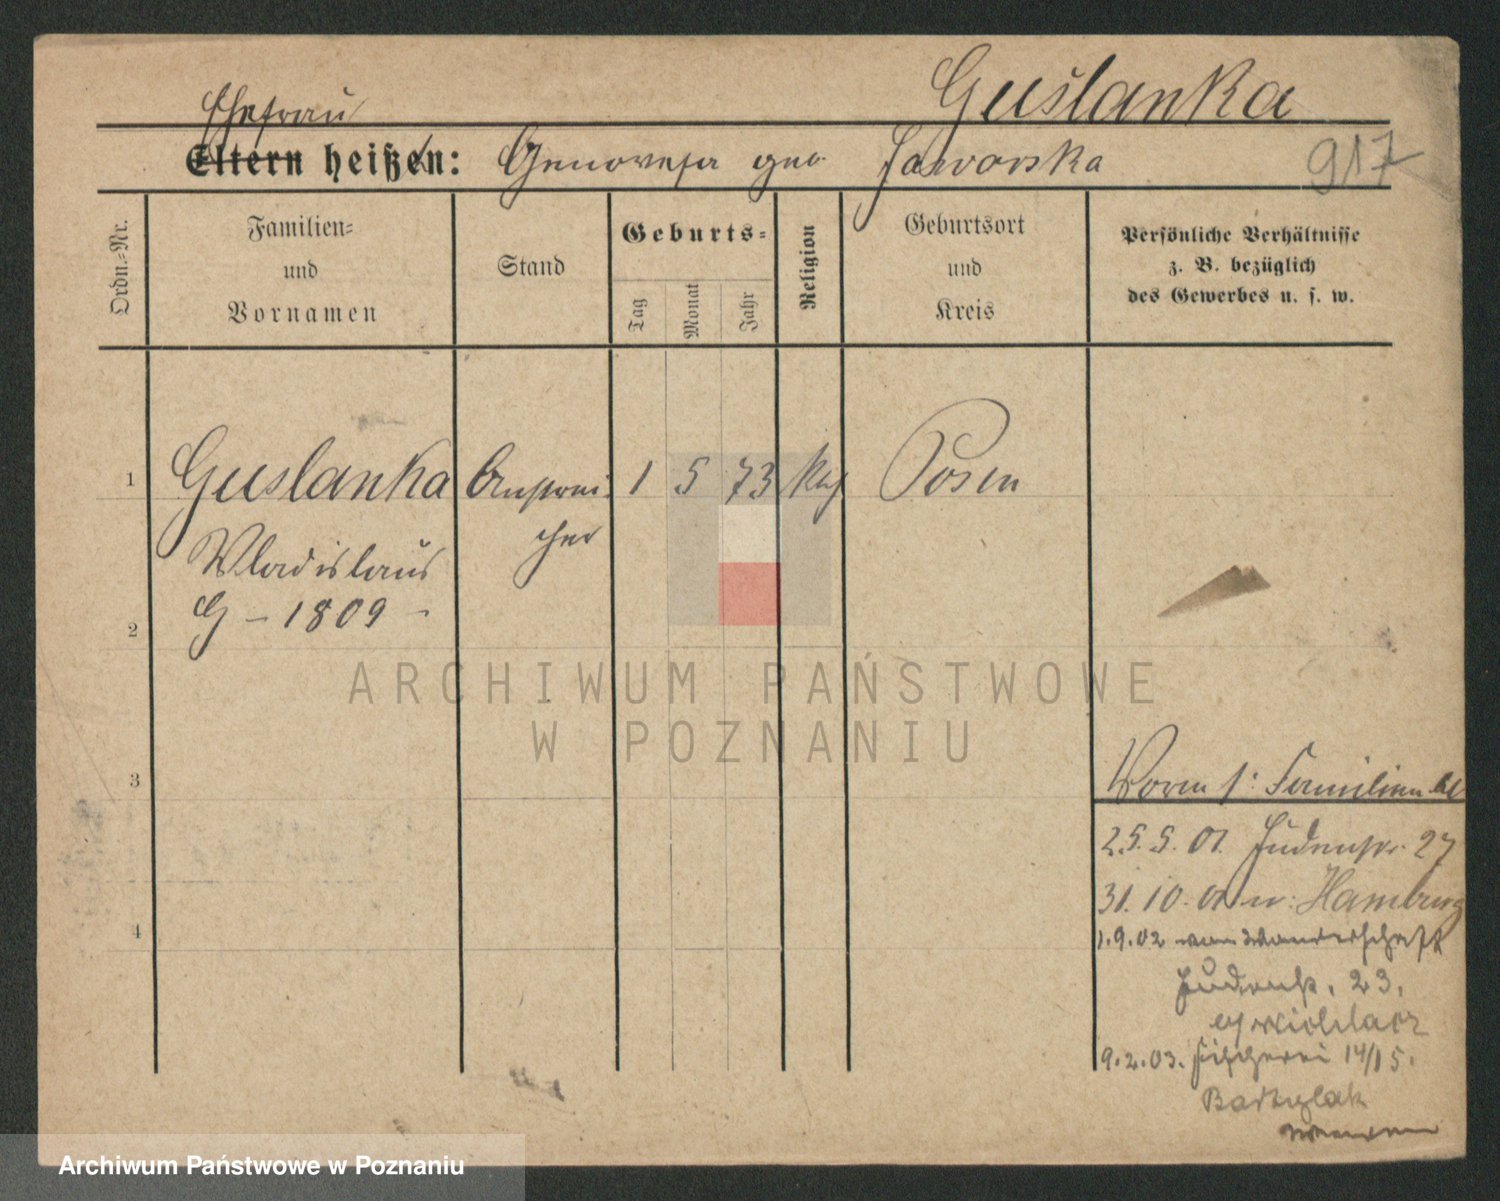 Guslanka
Ehefrau
Eltern heißen: Genovefa geb. Jaworska
917
Ordn.-Nr.
Familien-
und
Vornamen
Stand
Geburts-
Tag
Monat
Jahr
Religion
Geburtsort
und
Kreis
Persönliche Verhältnisse
z. B. bezüglich
des Gewerbes u. s. w.
1 Guslanka Anstrei- 1 5 73 kath Posen
cher
Wladislaus
G - 1809 -
2
3
4
Vorm 1: Familien bl
25.5.01. Judenstr. 27
31.10.01 n: Hamburg
1.9.02 von Wanderschaft
Judenstr. 23.
9.2.03. Fischerei 14/15.
ARCHIWUM PAŃSTWOWE
W POZNANIU
Archiwum Państwowe w Poznaniu